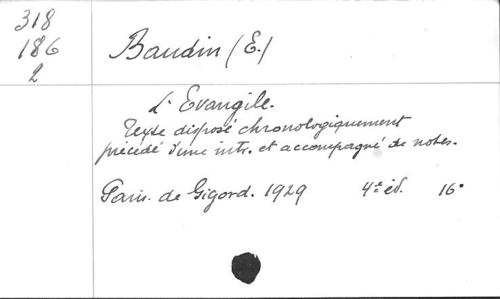 318
186
2
Baudin (E.)
L'Evangile.
Texte disposé chronologiquement
précédé d'une intr. et accompagné de notes.
Paris. de Gigord. 1929 4e éd. 16°